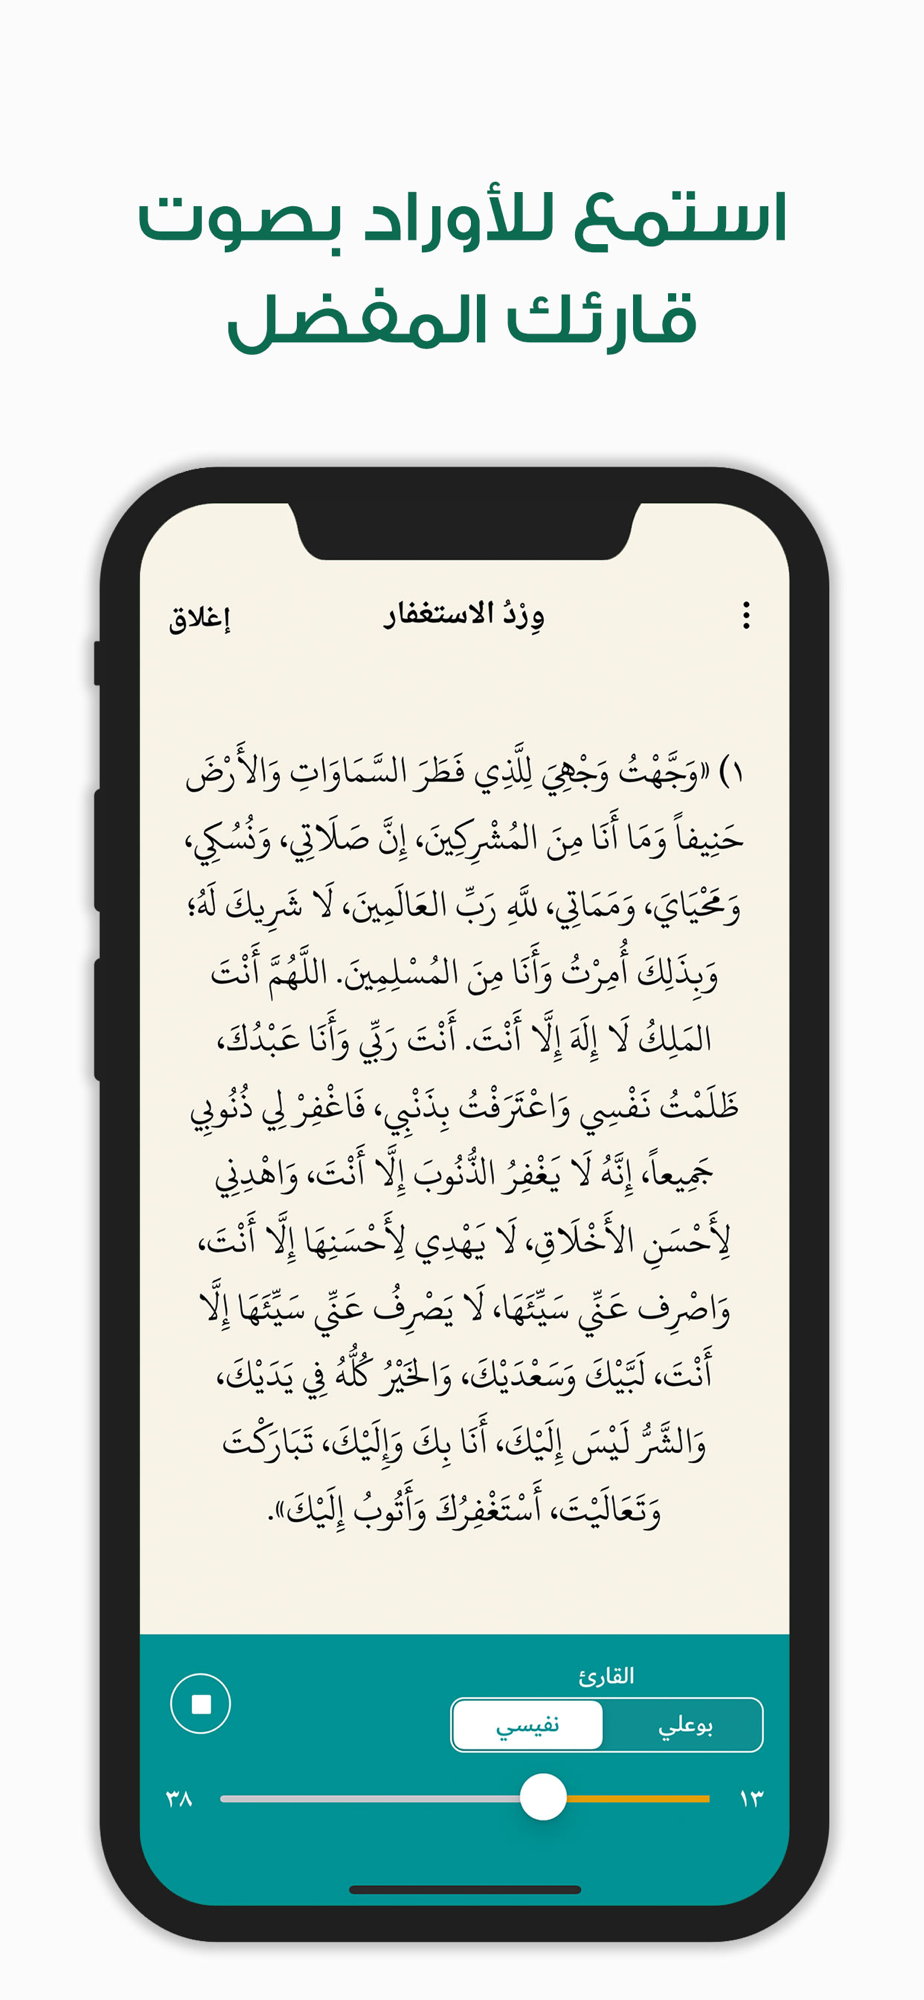 استمع للأوراد بصوت
قارئك المفضل
وِرْدُ الاستغفار
إغلاق
١) «وَجَّهْتُ وَجْهِيَ لِلَّذِي فَطَرَ السَّمَاوَاتِ وَالأَرْضَ
حَنِيفاً وَمَا أَنَا مِنَ المُشْرِكِينَ، إِنَّ صَلَاتِي، وَنُسُكِي،
وَمَحْيَايَ، وَمَمَاتِي، للهِ رَبِّ العَالَمِينَ، لَا شَرِيكَ لَهُ؛
وَبِذَلِكَ أُمِرْتُ وَأَنَا مِنَ المُسْلِمِينَ. اللَّهُمَّ أَنْتَ
المَلِكُ لَا إِلَهَ إِلَّا أَنْتَ. أَنْتَ رَبِّي وَأَنَا عَبْدُكَ،
ظَلَمْتُ نَفْسِي وَاعْتَرَفْتُ بِذَنْبِي، فَاغْفِرْ لِي ذُنُوبِي
جَمِيعاً، إِنَّهُ لَا يَغْفِرُ الذُّنُوبَ إِلَّا أَنْتَ، وَاهْدِنِي
لِأَحْسَنِ الأَخْلَاقِ، لَا يَهْدِي لِأَحْسَنِهَا إِلَّا أَنْتَ،
وَاصْرِف عَنِّي سَيِّئَهَا، لَا يَصْرِفُ عَنِّي سَيِّئَهَا إِلَّا
أَنْتَ، لَبَّيْكَ وَسَعْدَيْكَ، وَالخَيْرُ كُلُّهُ فِي يَدَيْكَ،
وَالشَّرُّ لَيْسَ إِلَيْكَ، أَنَا بِكَ وَإِلَيْكَ، تَبَارَكْتَ
وَتَعَالَيْتَ، أَسْتَغْفِرُكَ وَأَتُوبُ إِلَيْكَ».
القارئ
بوعلي
نفيسي
١٣
٣٨